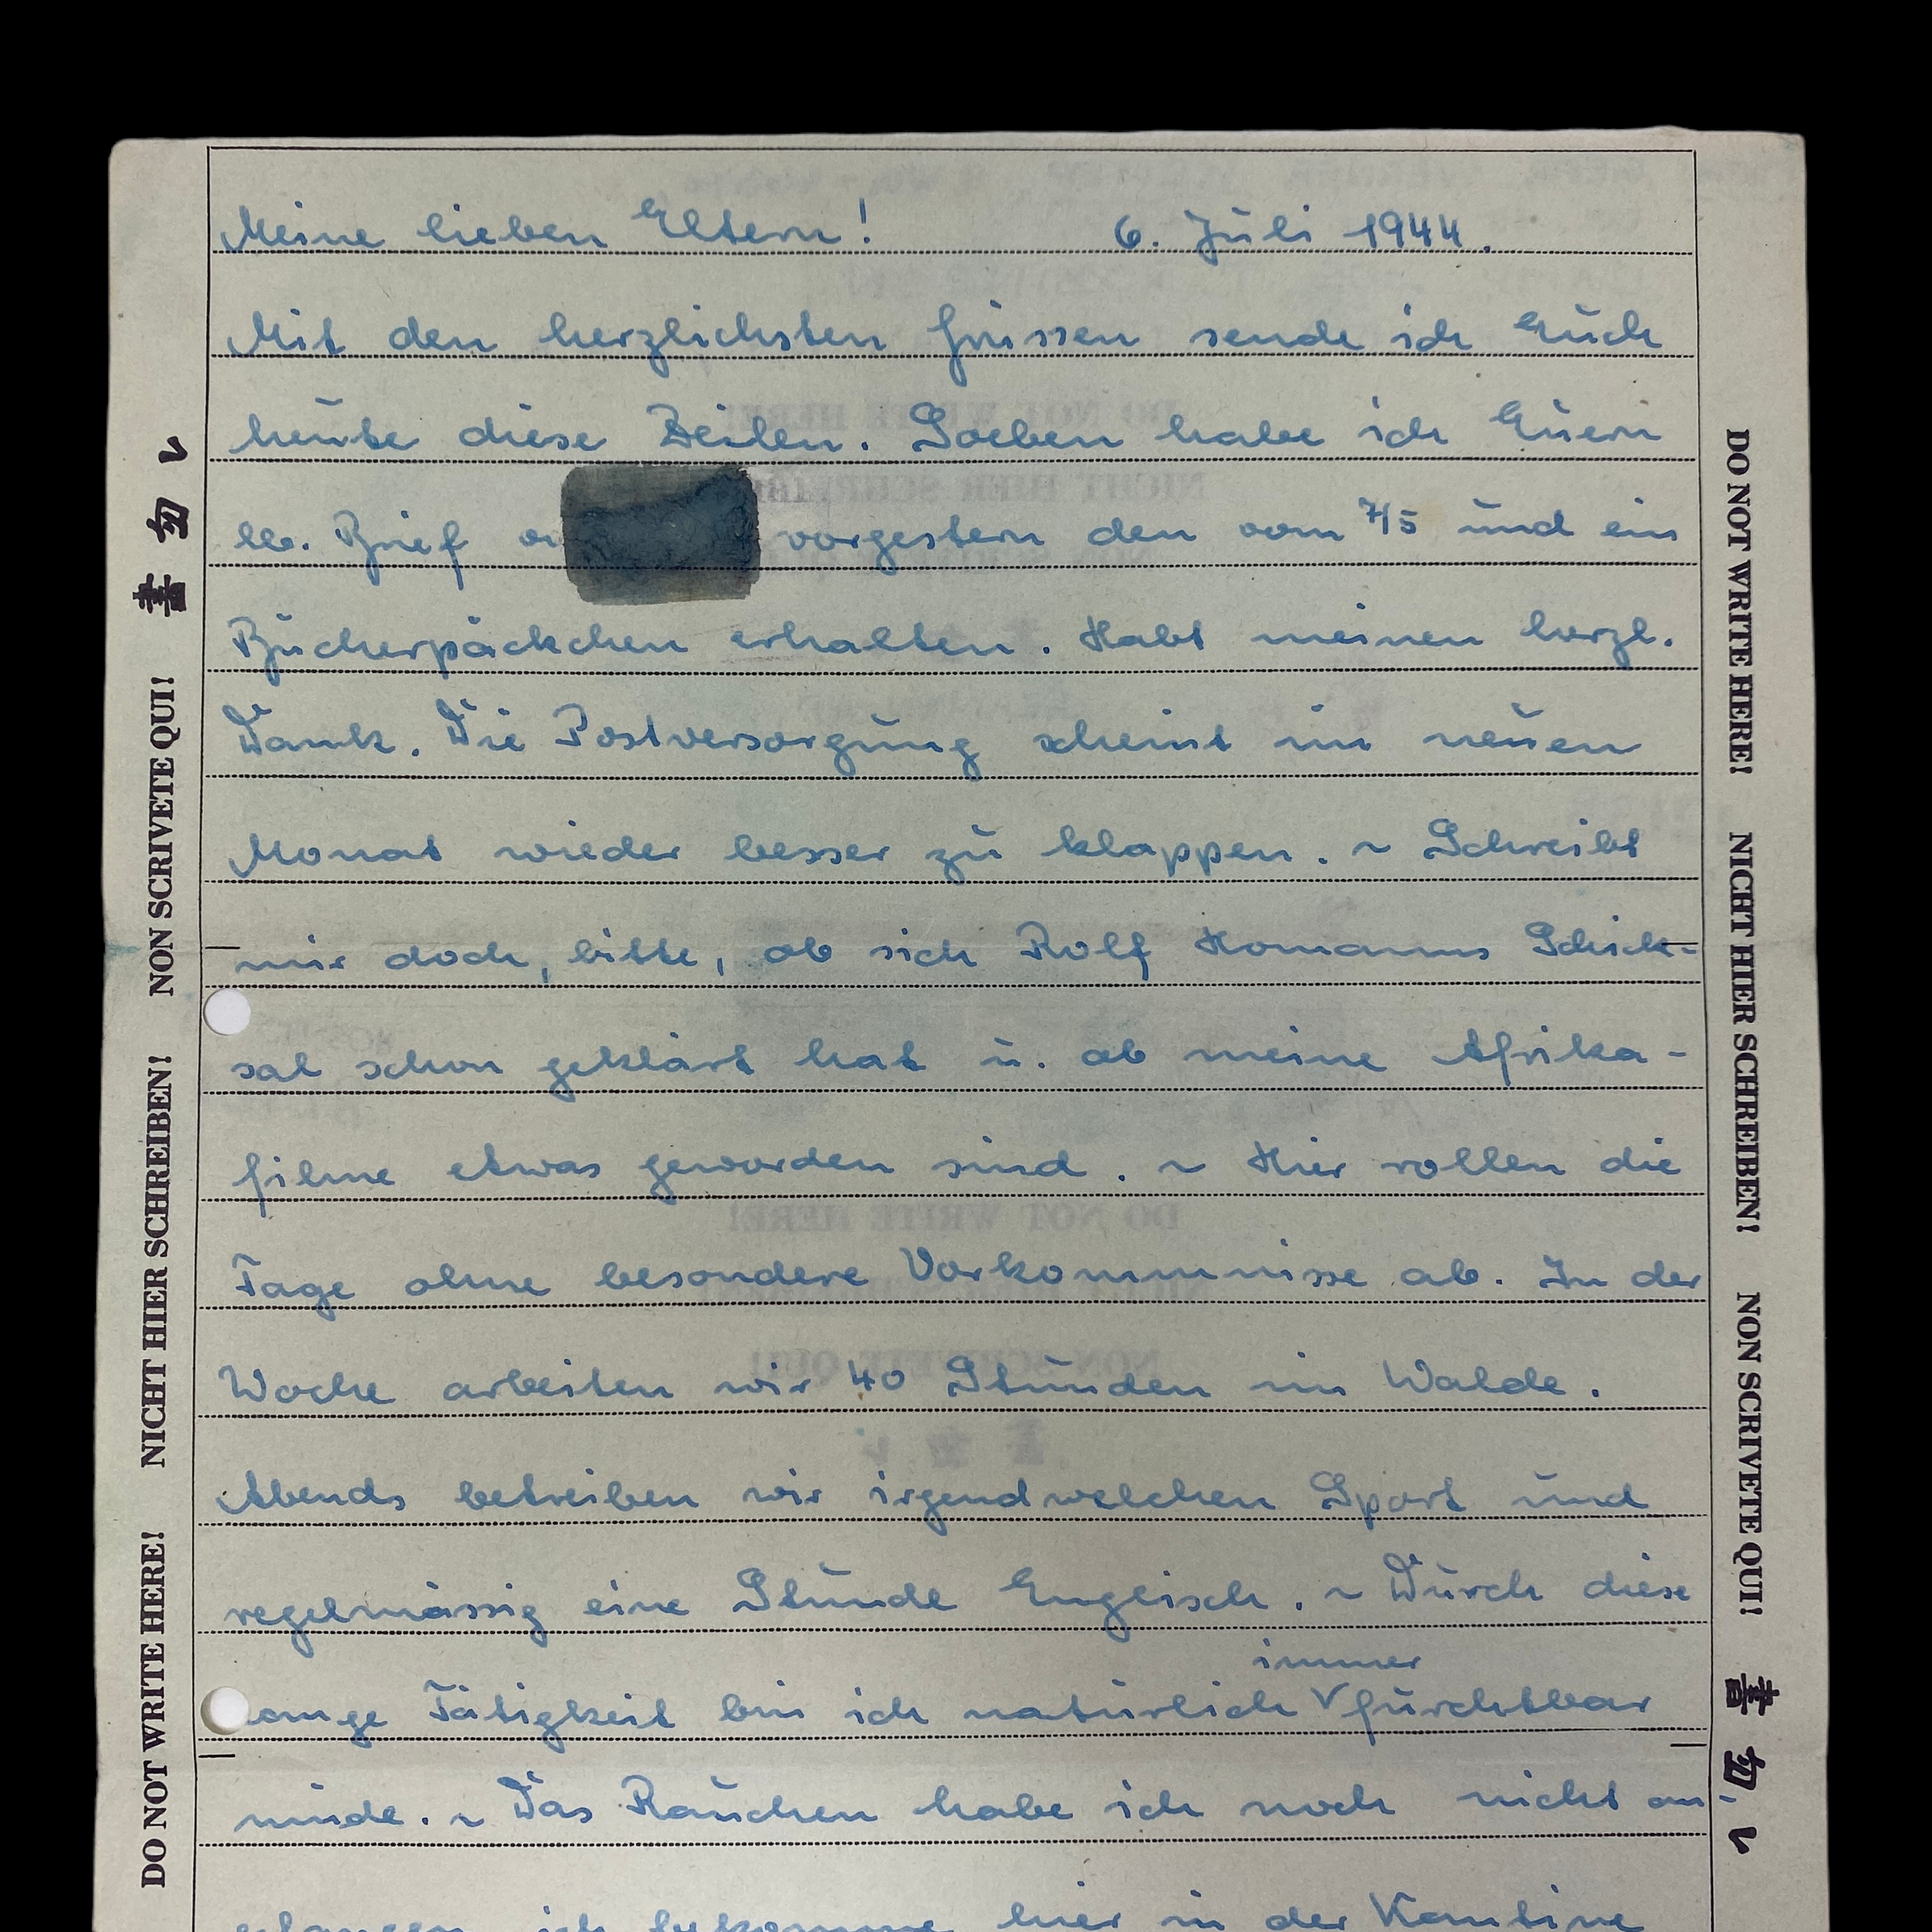 Meine lieben Eltern! 6. Juli 1944.
Mit den herzlichsten Grüssen sende ich Euch
heute diese Zeilen. Soeben habe ich Euern
lb. Brief vorgestern den vom 7/5 und ein
Bücherpäckchen erhalten. Habt meinen herzl.
Dank. Die Postversorgung scheint im neuen
Monat wieder besser zu klappen. ~ Schreibt
mir doch, bitte, ob sich Rolf Homanns Schick-
sal schon geklärt hat u. ob meine Afrika-
filme etwas geworden sind. ~ Hier rollen die
Tage ohne besondere Vorkommnisse ab. In der
Woche arbeiten wir 40 Stunden im Walde.
Abends betreiben wir irgendwelchen Sport und
regelmässig eine Stunde Englisch. ~ Durch diese
immer
lange Tätigkeit bin ich natürlich furchtbar
müde. ~ Das Rauchen habe ich noch nicht an-
gefangen, ich bekomme hier in der Kantine
DO NOT WRITE HERE! NICHT HIER SCHREIBEN! NON SCRIVETE QUI! 書勿レ
DO NOT WRITE HERE! NICHT HIER SCHREIBEN! NON SCRIVETE QUI! 書勿レ